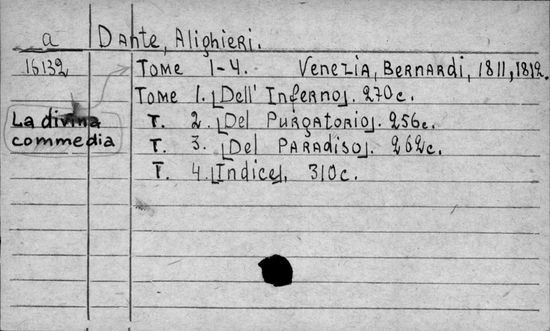 a Dante, Alighieri.
16132 Tome 1-4. Venezia, Bernardi, 1811, 1812.
Tome 1. [Dell' Inferno]. 270c.
La divina commedia
T. 2. [Del Purgatorio]. 256c.
T. 3. [Del Paradiso]. 262c.
T. 4. [Indice], 310c.